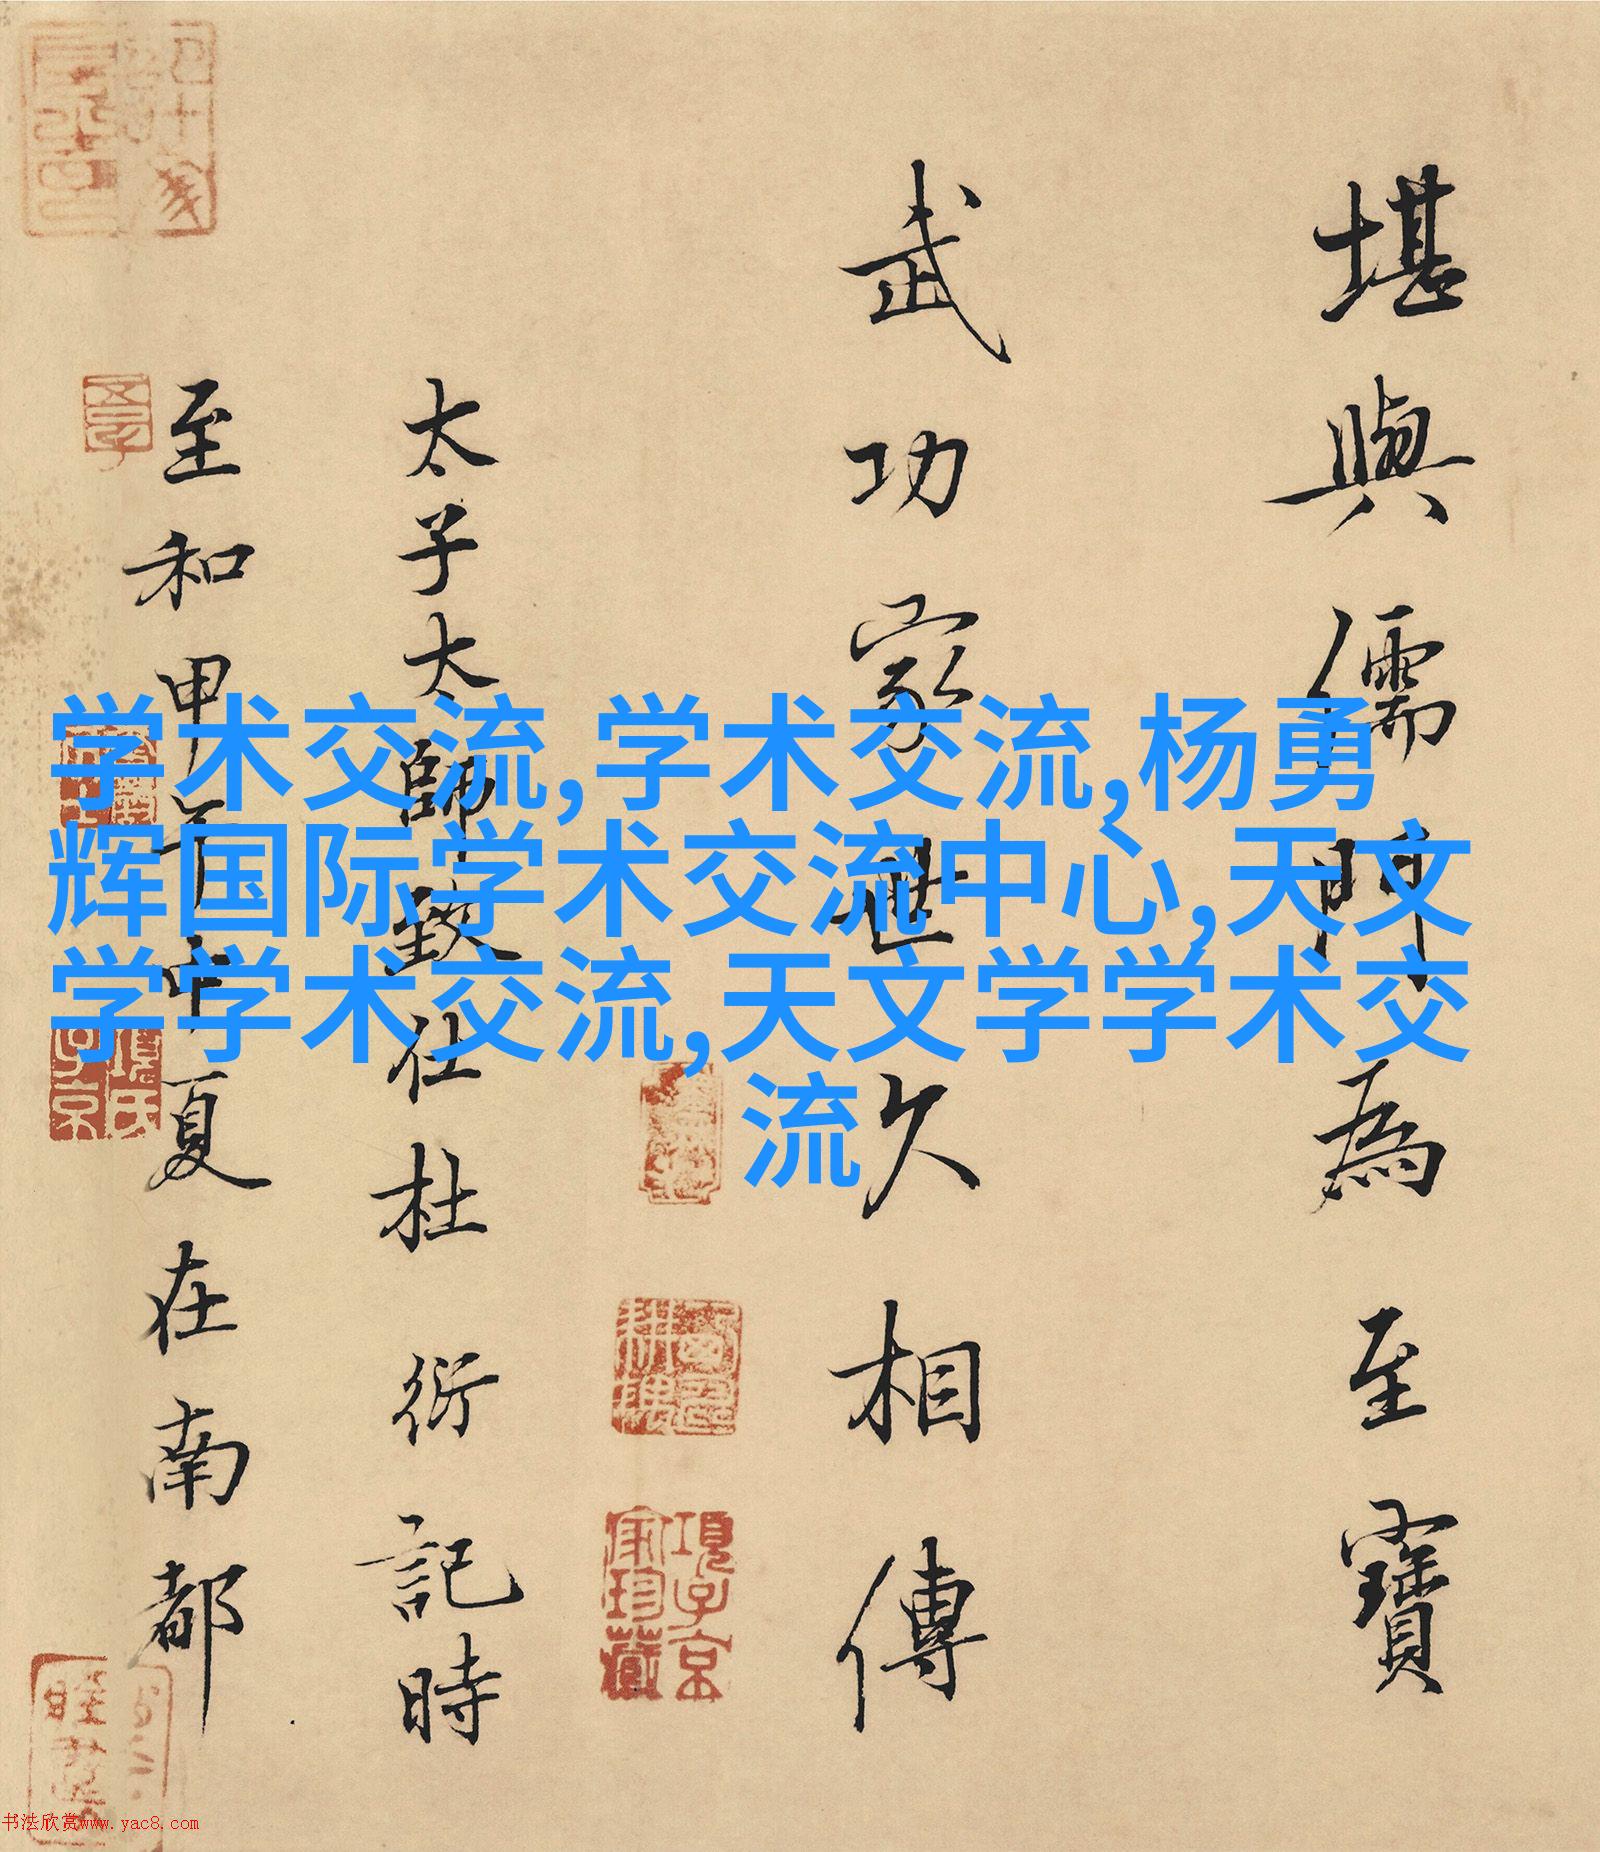 堪與儒門為至寶
武功家世久相傳
太子太師致仕杜衍記時
至和甲午中夏在南都
学术交流,学术交流,杨勇
辉国际学术交流中心,天文
学学术交流,天文学学术交
流
項子京
家珍藏
項氏
子京
书法欣赏www.yac8.com